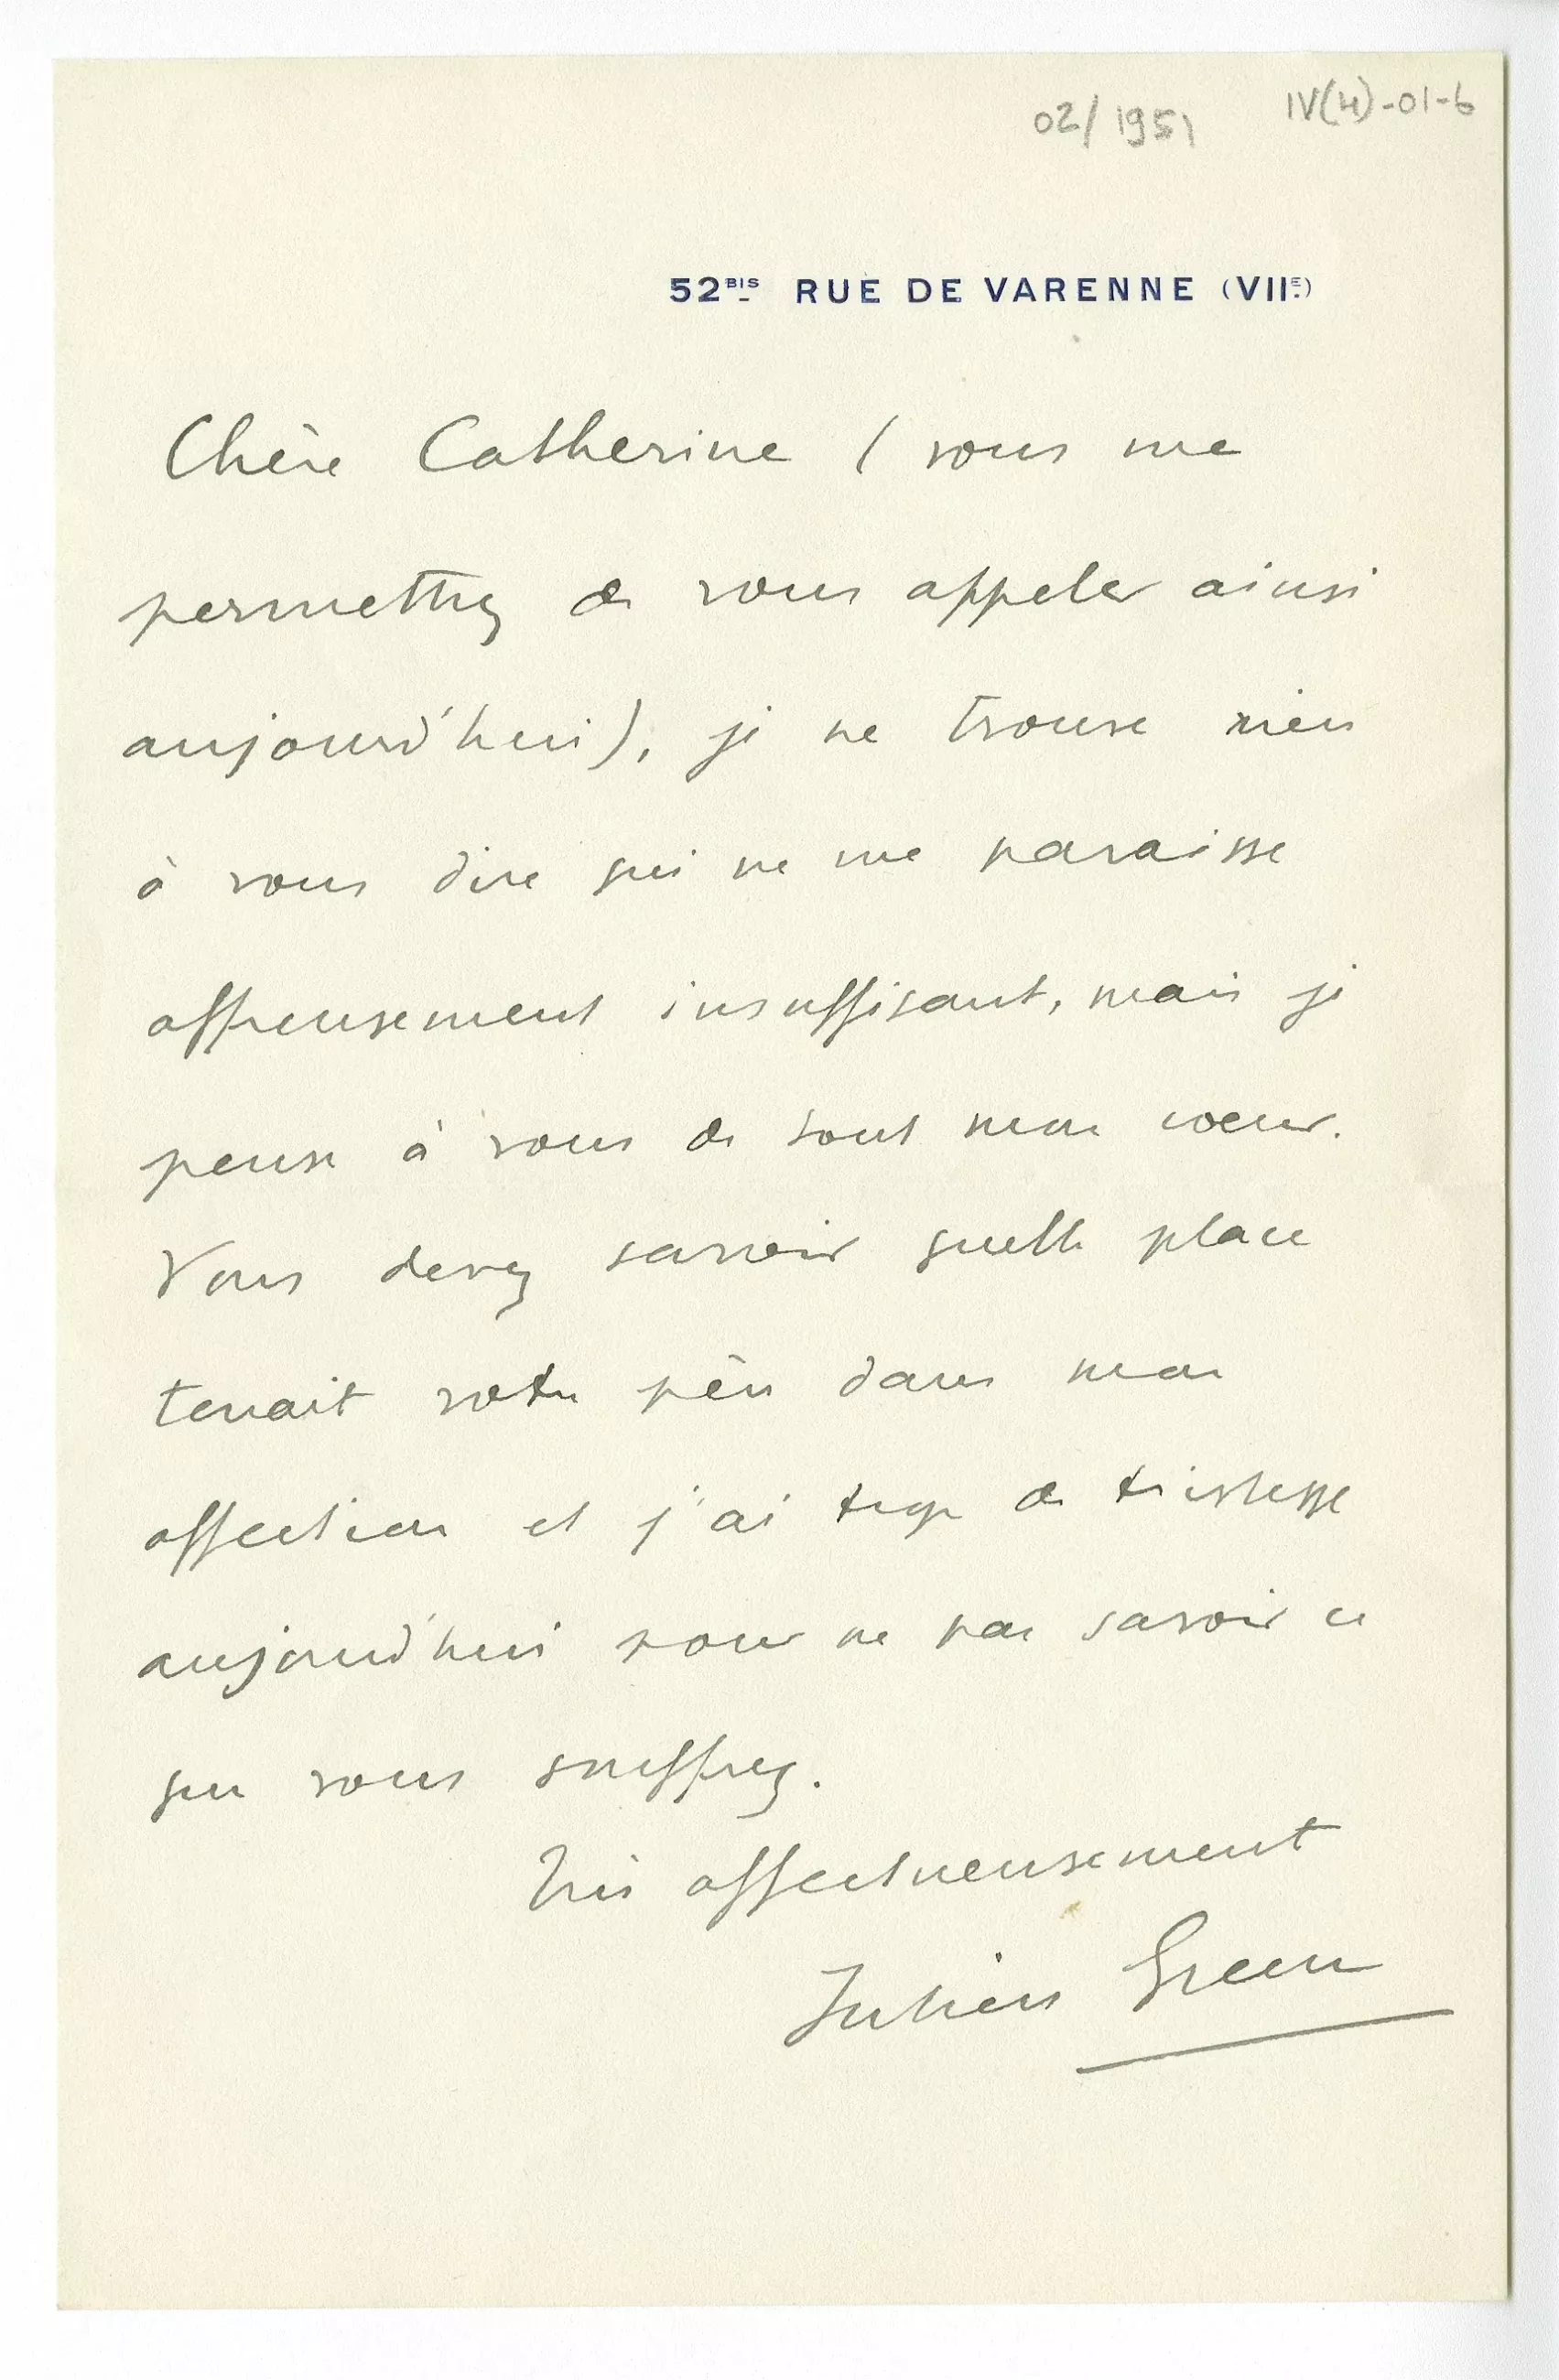 02/1951 IV(4)-01-6
52BIS RUE DE VARENNE (VIIE)
Chère Catherine (vous me
permettrez de vous appeler ainsi
aujourd'hui), je ne trouve rien
à vous dire qui ne me paraisse
affreusement insuffisant, mais je
pense à vous de tout mon cœur.
Vous devez savoir quelle place
tenait votre père dans mon
affection et j'ai trop de tristesse
aujourd'hui pour ne pas savoir ce
que vous souffrez.
Très affectueusement
Julien Green